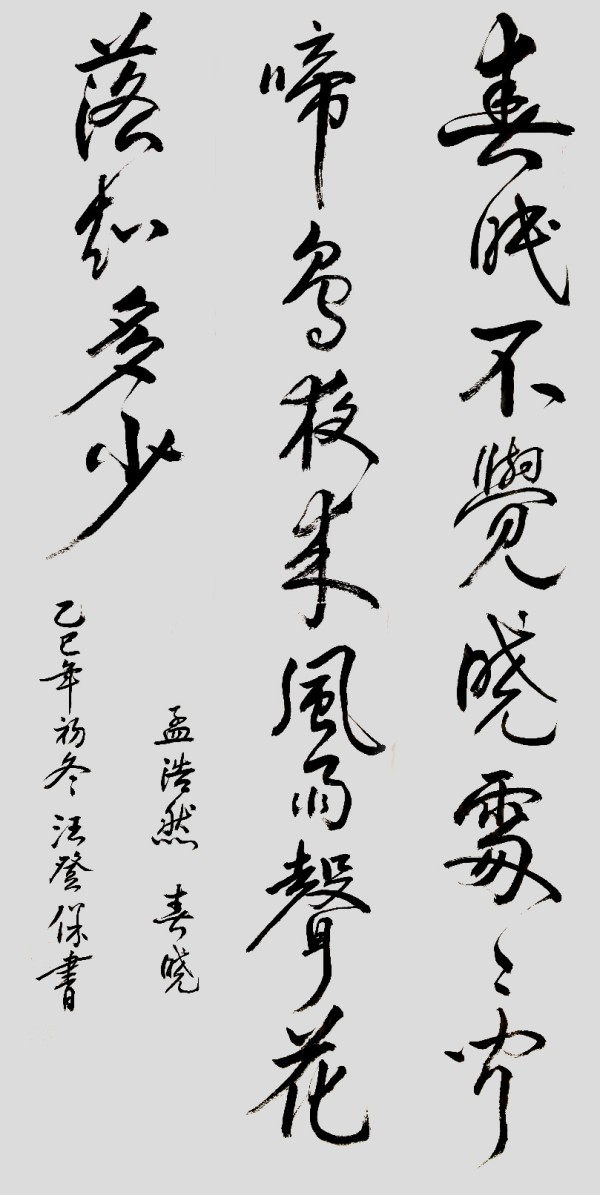 春眠不覺晓處〻聞
啼鳥夜来風雨聲花
落知多少
孟浩然 春晓
乙巳年初冬 汪登保書